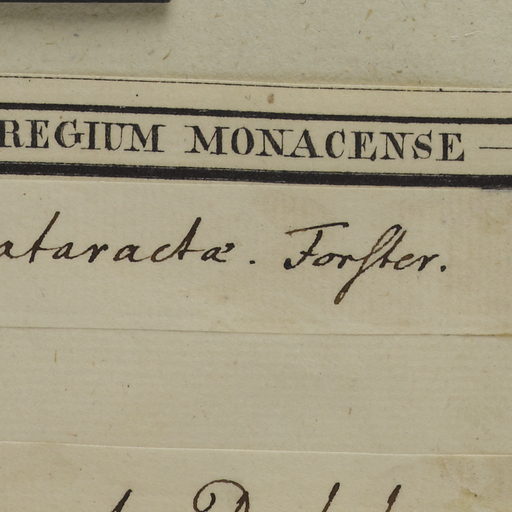 REGIUM MONACENSE
ataractæ. Forſter.